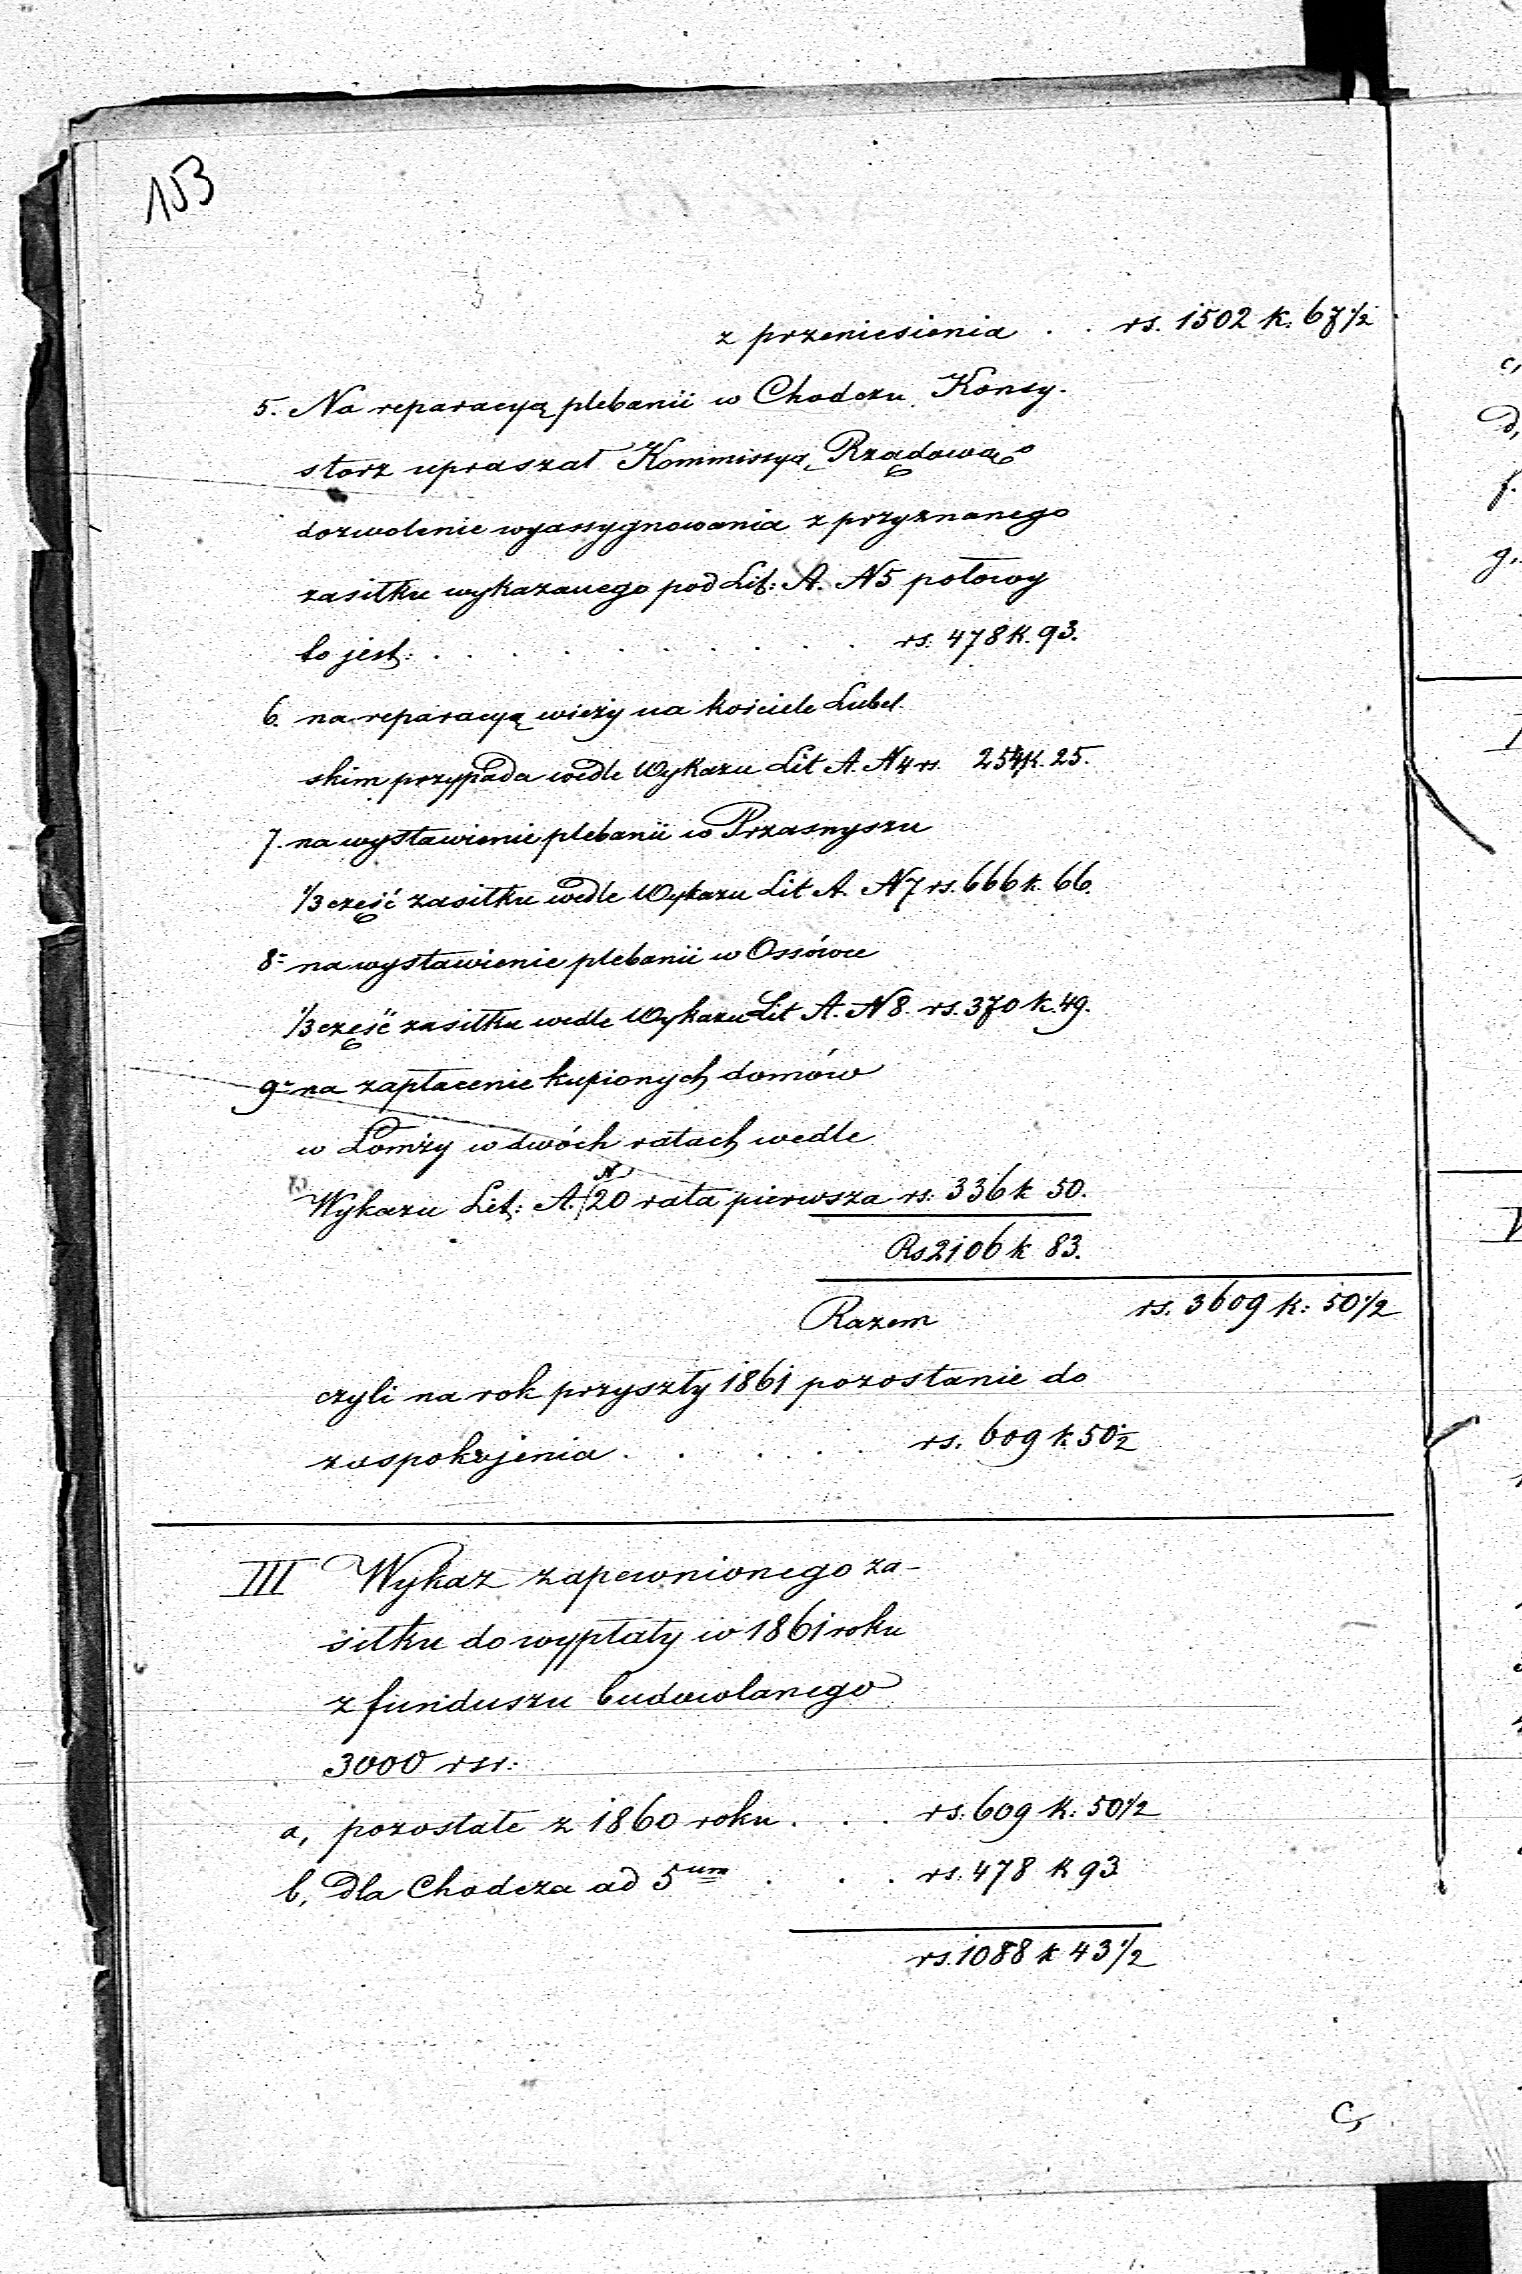 153
z przeniesienia . . rs. 1502 k. 67 1/2
5. Na reparacyą plebanii w Chodczu Konsy-
storz upraszał Kommissyą Rządową o
dozwolenie wyassygnowania z przyznanego
zasiłku wykazanego pod Lit: A. N 5 połowy
to jest: . . . . . . . . rs. 478 k. 93.
6. na reparacyą wieży na kościele Lubel-
skim przypada wedle Wykazu Lit A. N 4 rs. 254 k. 25.
7. na wystawienie plebanii w Przasnyszu
1/3 część zasiłku wedle Wykazu Lit A. N 7 rs. 666 k. 66.
8. na wystawienie plebanii w Ossówce
1/3 część zasiłku wedle Wykazu Lit A. N 8. rs. 370 k. 49.
9. na zapłacenie kupionych domów
w Łomży w dwóch ratach wedle
Wykazu Lit: A. N 20 rata pierwsza rs: 336 k 50.
Rs 2106 k 83.
Razem rs. 3609 k: 50 1/2
czyli na rok przyszły 1861 pozostanie do
zaspokojenia . . . . . rs. 609 k 50 1/2
III Wykaz zapewnionego za-
siłku do wypłaty w 1861 roku
z funduszu budowlanego
3000 rsr:
a, pozostałe z 1860 roku . . . rs. 609 k: 50 1/2
b, dla Chodcza ad 5um . . . rs. 478 k 93
rs. 1088 k 43 1/2
c,
c,
d,
f.
g.